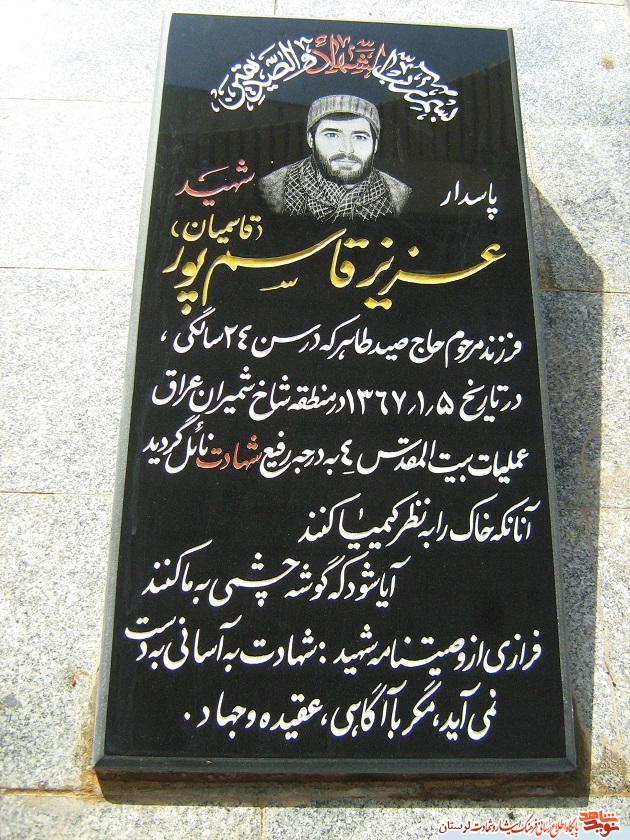 بسم رب الشهداء والصدیقین
پاسدار شهید
عزیز قاسم پور (قاسمیان)
فرزند مرحوم حاج صید طاهر که در سن ۲٤ سالگی ،
در تاریخ ۱۳۶۷٫۱٫۵ در منطقه شاخ شمیران عراق
عملیات بیت المقدس ٤ به درجه رفیع شهادت نائل گردید
آنانکه خاک را به نظر کیمیا کنند
آیا شود که گوشه چشمی به ما کنند
فرازی از وصیتنامه شهید : شهادت به آسانی به دست
نمی آید ، مگر با آگاهی ، عقیده و جهاد .
نوید شاهد پایگاه اطلاع رسانی فرهنگ ایثار و شهادت لرستان